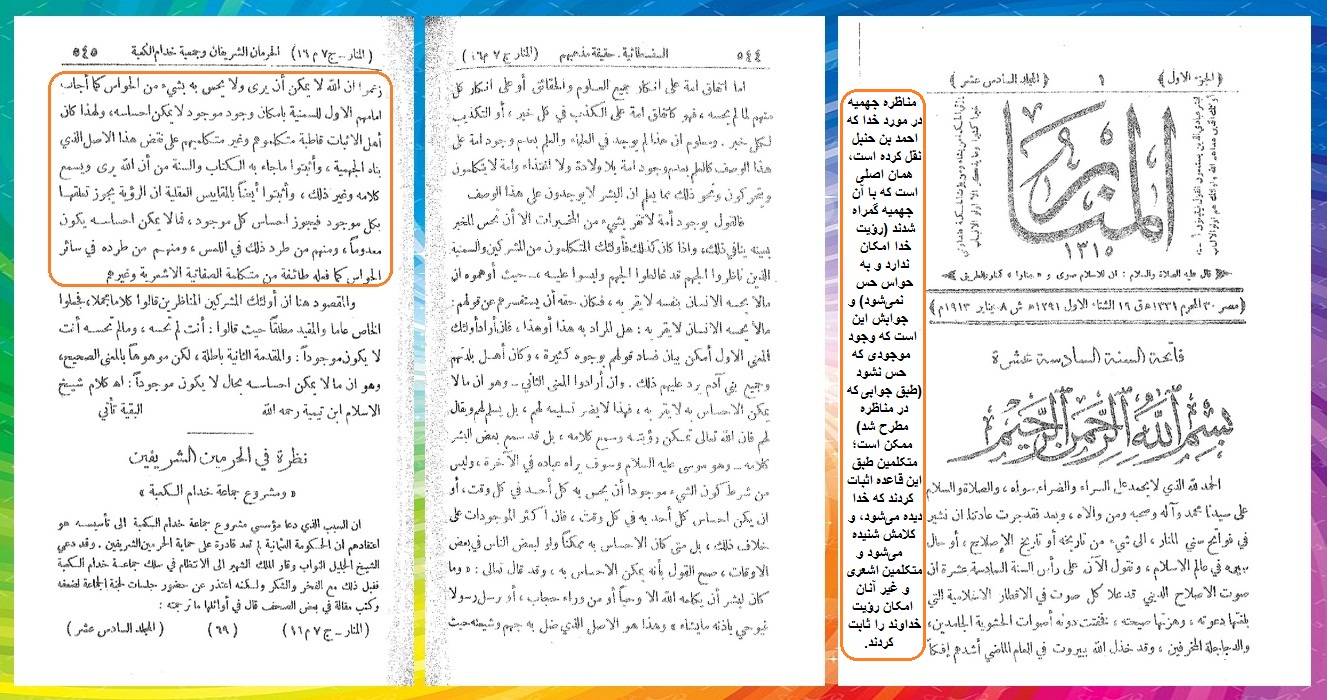 ( الجزء الاول )
١
( المجلد السادس عشر )
المنار
١٣١٥
( قال عليه الصلاة والسلام : ان للاسلام صوى و « منارا » كمنار الطريق )
( مصر ٣٠ المحرم ١٣٣١ ه‍ ق ١٦ الشتاء الاول ١٢٩١ ه‍ ش ٨ يناير ١٩١٣ م )
فاتحة السنة السادسة عشرة
بسم الله الرحمن الرحيم
الحمد لله الذي لا يحمد على السراء والضراء سواه ، والصلاة والسلام
على سيدنا محمد وآله وصحبه ومن والاه ، وبعد فقد جرت عادتنا ان نشير
في فواتح سني المنار ، الى شيء من تاريخه أو تاريخ الإصلاح ، أو حال
سيره في عالم الاسلام ، ونقول الآن على رأس السنة السادسة عشرة ان
صوت الاصلاح الديني قد علا كل صوت في الاقطار الاسلامية التي
بلغتها دعوته ، وهزتها صيحته ، فخفتت دونه أصوات الحشوية الجامدين ،
والدجاجلة المخرفين ، وقد خذل الله ببيروت في العام الماضي أشدهم إفكا
مناظره جهمیه
در مورد خدا که
احمد بن حنبل
نقل کرده است،
همان اصلی
است که با آن
جهمیه گمراه
شدند (رؤیت
خدا امکان
ندارد و به
حواس حس
نمی‌شود) و
جوابش این
است که وجود
موجودی که
حس نشود
(طبق جوابی که
در مناظره
مطرح شد)
ممکن است؛
متکلمین طبق
این قاعده اثبات
کردند که خدا
دیده می‌شود، و
کلامش شنیده
می‌شود و
متکلمین اشعری
و غیر آنان
امکان رؤیت
خداوند را ثابت
کردند.
٥٤٤
السفسطائية . حقيقة مذهبهم
( المنار ج ٧ م ١٦ )
اما اتفاق امة على انكار جميع العلوم والحقائق أو على انكار كل
منهم لما لم يحسه ، فهو كاتفاق امة على الكذب في كل خبر ، أو التكذيب
لكل خبر . ومعلوم ان هذا لم يوجد في العالم ، والعلم بعدم وجود امة على
هذا الوصف كالعلم بعدم وجود امة بلا ولادة ولا اغتذاء وامة لا يتكلمون
ويتحركون ونحو ذلك مما يعلم ان البشر لا يوجدون على هذا الوصف
فالقول بوجود أمة لا تقر بشيء من المخبرات الا أن تحس المخبر
بعينه ينافي ذلك ، واذا كان كذلك فأولئك المتكلمون من المشركين والسمنية
الذين ناظروا الجهم قد غالطوا الجهم ولبسوا عليه ، حيث أوهموه ان
مالا يحسه الانسان بنفسه لا يقر به ، فكان حقه أن يستفسرهم عن قولهم :
مالا يحسه الانسان لا يقر به : هل المراد به هذا أو هذا ، فان أراد أولئك
المعني الاول أمكن بيان فساد قولهم بوجوه كثيرة ، وكان أهل بلدتهم
وجميع بني آدم يرد عليهم ذلك . وان أرادوا المعنى الثاني – وهو ان مالا
يمكن الاحساس به لا يقر به ، فهذا لا يضر تسليمه لهم ، بل يسلم لهم ويقال
لهم فان الله تعالى يمكن رؤيته وسمع كلامه ، بل قد سمع بعض البشر
كلامه – وهو موسى عليه السلام وسوف يراه عباده في الآخرة ، وليس
من شرط كون الشيء موجوداً أن يحس به كل أحد في كل وقت ، أو
ان يكن احساس كل أحد به في كل وقت ، فان اكثر الموجودات على
خلاف ذلك ، بل متى كان الاحساس به ممكناً ولو لبعض الناس في بعض
الاوقات ، صح القول بأنه يمكن الاحساس به ، وقد قال تعالى : « وما
كان لبشر أن يكلمه الله الا وحياً أو من وراء حجاب ، أو يرسل رسولا
فيوحي باذنه ما يشاء » وهذا هو الاصل الذي ضل به جهم وشيعته حيث
( المنار – ج ٧ م ١٦ )
الحرمان الشريفان وجمعية خدام الكعبة
٥٤٥
زعموا ان الله لا يمكن أن يرى ولا يحس به بشيء من الحواس كما أجاب
امامهم الاول للسمنية بامكان وجود موجود لا يمكن احساسه ، ولهذا كان
أهل الاثبات قاطبة متكلموهم وغير متكلميهم على نقض هذا الاصل الذي
بناه الجهمية ، وأثبتوا ما جاء به الكتاب والسنة من أن الله يرى ويسمع
كلامه وغير ذلك ، وأثبتوا أيضاً بالمقاييس العقلية ان الرؤية يجوز تعلقها
بكل موجود فيجوز احساس كل موجود ، فما لا يمكن احساسه يكون
معدوماً ، ومنهم من طرد ذلك في اللمس ، ومنهم من طرده في سائر
الحواس كما فعله طائفة من متكلمة الصفاتية الاشعرية وغيرهم
والمقصود هنا ان أولئك المشركين المناظرين قالوا كلاما مجملا ، فجعلوا
الخاص عاما والمقيد مطلقاً حيث قالوا : أنت لم تحسه ، ومالم تحسه أنت
لا يكون موجوداً : والمقدمة الثانية باطلة ، لكن موهوها بالمعنى الصحيح ،
وهو ان ما لا يمكن احساسه بحال لا يكون موجوداً : اه‍ كلام شيخ
الاسلام ابن تيمية رحمه الله البقية تأتي
نظرة في الحرمين الشريفين
« ومشروع جماعة خدام الكعبة »
ان السبب الذي دعا مؤسسي مشروع جماعة خدام الكعبة الى تأسيسه هو
اعتقادهم ان الحكومة العثمانية لم تعد قادرة على حماية الحرمين الشريفين . وقد دعي
الشيخ الجليل النواب وقار الملك الشهير الى الانتظام في سلك جماعة خدام الكعبة
فقبل ذلك مع الفخر والشكر ولكنه اعتذر عن حضور جلسات لجنة الجماعة لضعفه
وكتب مقالة في بعض الصحف قال في أوائلها ما ترجمته :
( المنار – ج ٧ م ١٦ ) ( ٦٩ ) ( المجلد السادس عشر )